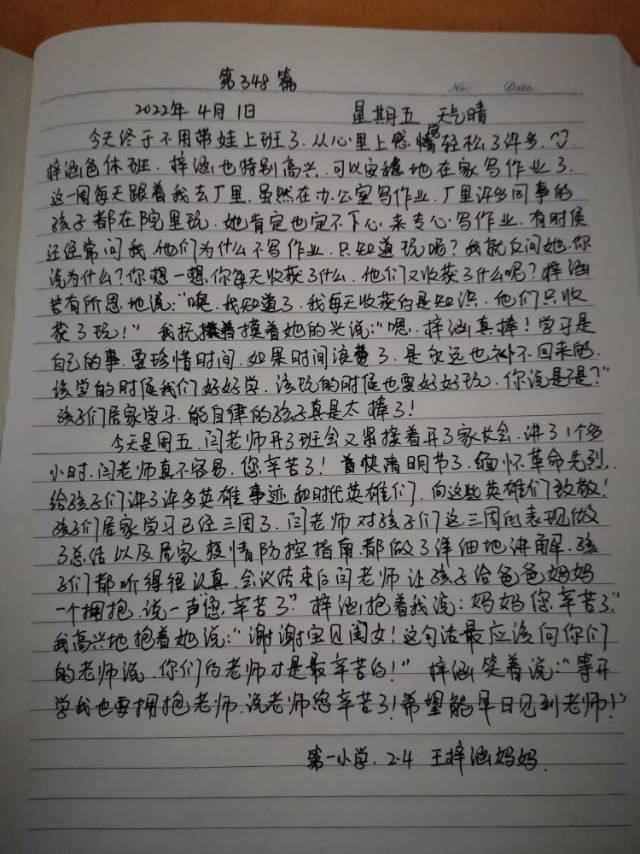 第348篇
No. Date
2022年4月1日 星期五 天气晴
今天终于不用带娃上班了.从心里上感觉轻松了许多.
梓涵爸休班.梓涵也特别高兴.可以安稳地在家写作业了.
这一周每天跟着我去厂里.虽然在办公室写作业.厂里许多同事的
孩子都在院里玩.她肯定也定不下心来专心写作业.有时候
还经常问我.他们为什么不写作业.只知道玩呢?我就反问她.你
说为什么?你想一想.你每天收获了什么.他们又收获了什么呢?梓涵
若有所思地说:"嗯.我知道了.我每天收获的是知识.他们只收
获了玩!"我抚摸着摸着她的头说:"嗯.梓涵真棒!学习是
自己的事.要珍惜时间.如果时间浪费了.是永远也补不回来的.
该学的时候我们好好学.该玩的时候也要好好玩.你说是不是?"
孩子们居家学习.能自律的孩子真是太棒了!
今天是周五.闫老师开了班会又紧接着开了家长会.讲了1个多
小时.闫老师真不容易.您辛苦了!首快清明节了.缅怀革命先烈.
给孩子们讲了许多英雄事迹和时代英雄们.向这些英雄们致敬!
孩子们居家学习已经三周了.闫老师对孩子们这三周的表现做
了总结以及居家疫情防控指南.都做了详细地讲解.孩
子们都听得很认真.会议结束后闫老师让孩子给爸爸妈妈
一个拥抱.说一声"您辛苦了"梓涵抱着我说:妈妈您辛苦了"
我高兴地抱着她说:"谢谢宝贝闺女!这句话最应该向你们
的老师说.你们的老师才是最辛苦的!"梓涵笑着说:"等开
学我也要拥抱老师.说老师您辛苦了!希望能早日见到老师!"
第一小学.2.4 王梓涵妈妈.